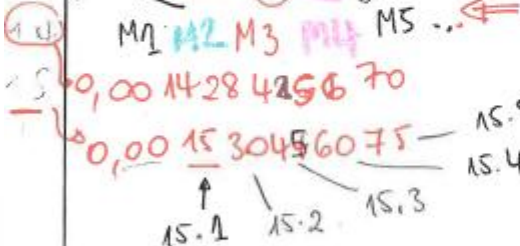 M1 M2 M3 M4 M5 ...
14
0,00 14 28 42 56 70
15
0,00 15 30 45 60 75
15.1 15.2 15.3 15.4